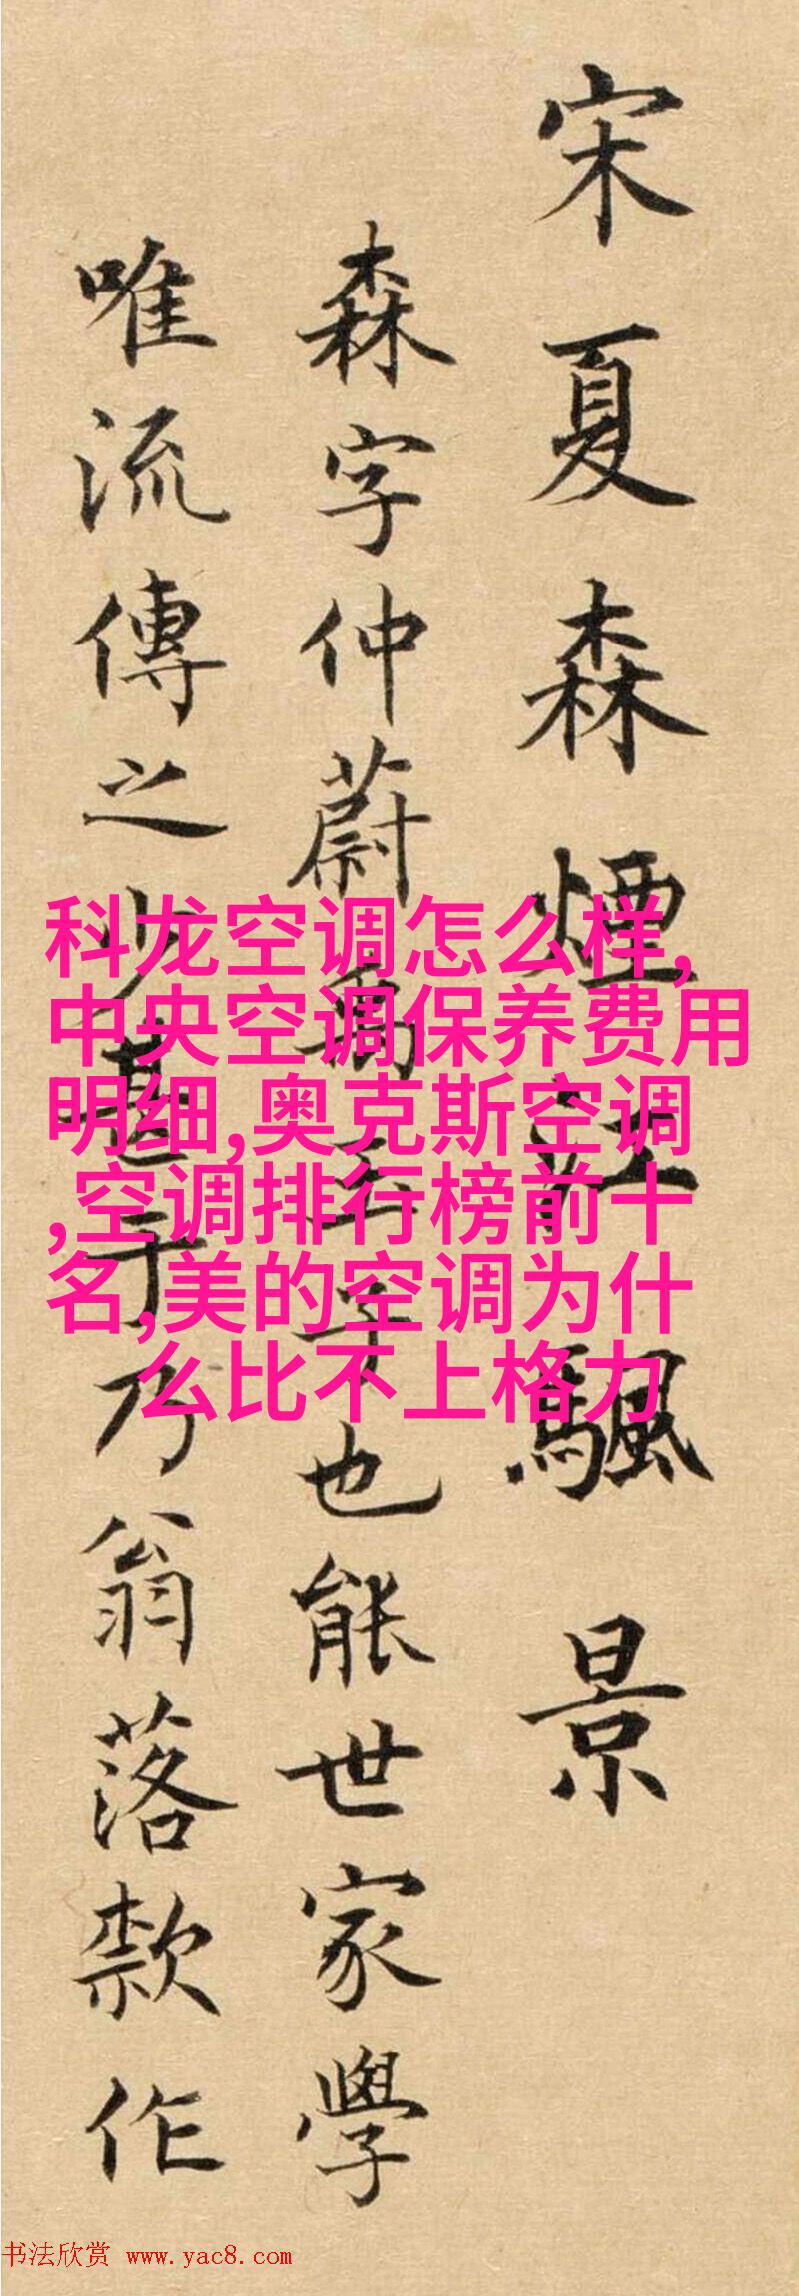 宋夏森煙江颿景
森字仲蔚禹玉子也能世家學
唯流傳之少甚于乃翁落款作
科龙空调怎么样,
中央空调保养费用
明细,奥克斯空调
,空调排行榜前十
名,美的空调为什
么比不上格力
书法欣赏 www.yac8.com